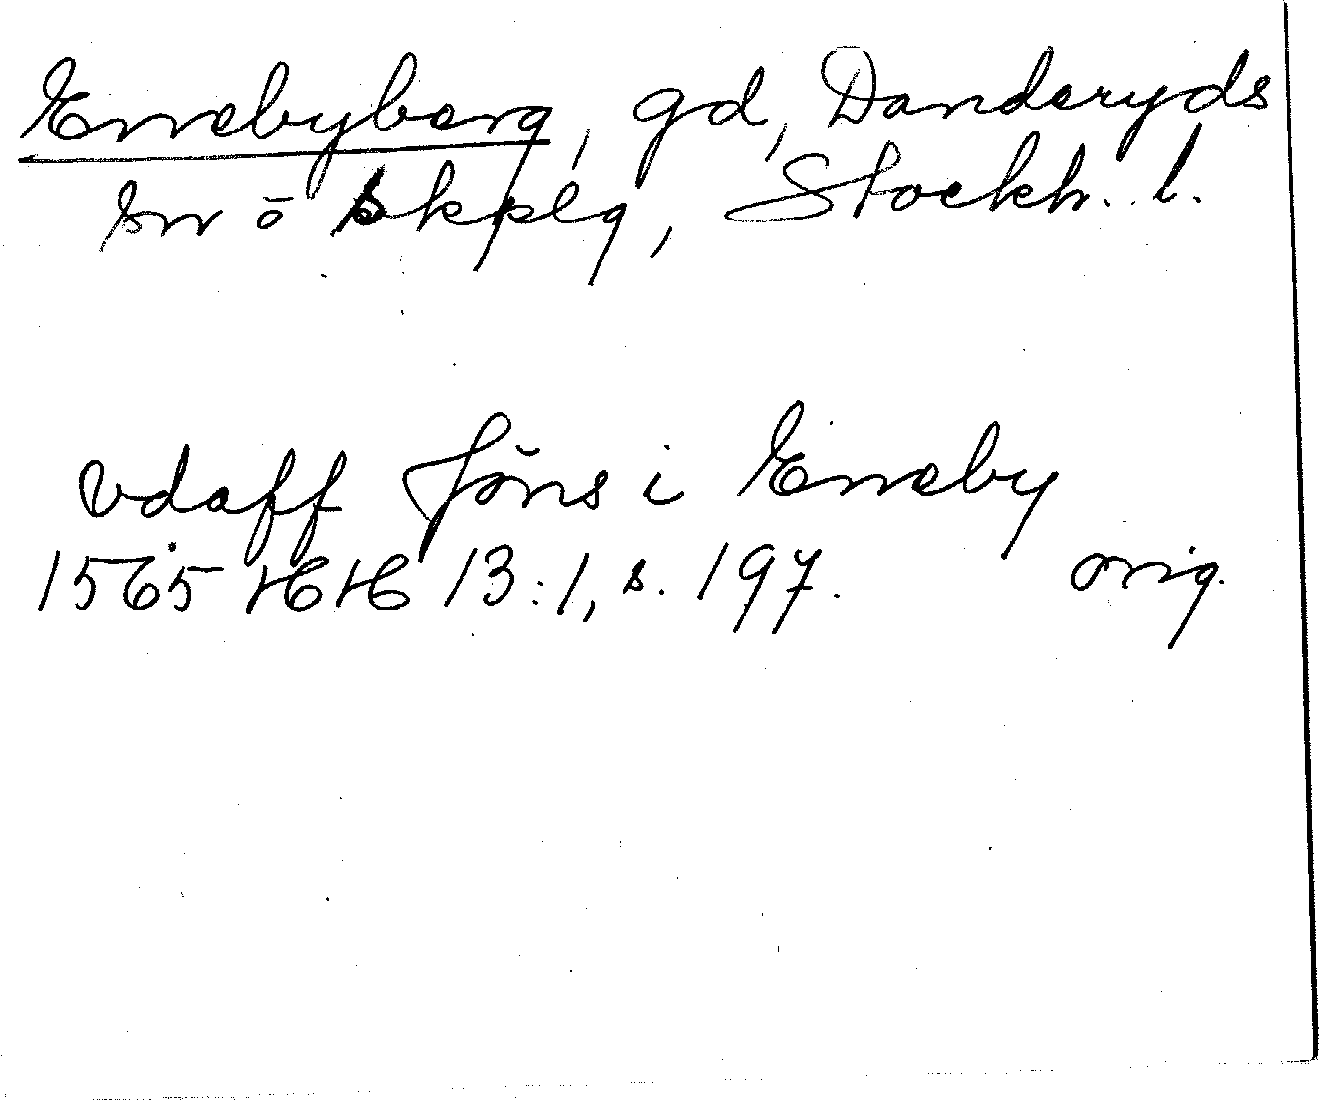 Enebyberg, gd, Danderyds
sn o skplg, Stockh. l.
vdaff Jöns i Eneby
1565 HH 13:1, s. 197. orig.